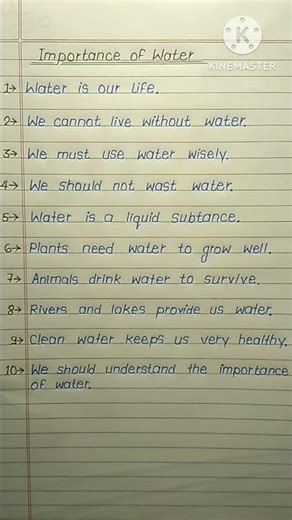 K
KINEMASTER
Importance of Water
1→ Water is our life.
2→ We cannot live without water.
3→ We must use water wisely.
4→ We should not wast water.
5→ Water is a liquid subtance.
6→ Plants need water to grow well.
7→ Animals drink water to survive.
8→ Rivers and lakes provide us water.
9→ Clean water keeps us very healthy.
10→ We should understand the importance
of water.